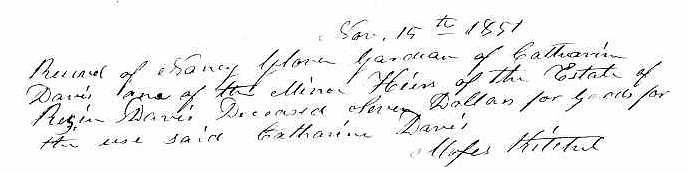 Nov, 15th 1851
Received of Nancy Glover Gardian of Catharin
Davis one of the Minor Heirs of the Estate of
Rezin Davis Deceased Seven Dollars for goods for
the use said Catharine Davis
Moses Kitchel